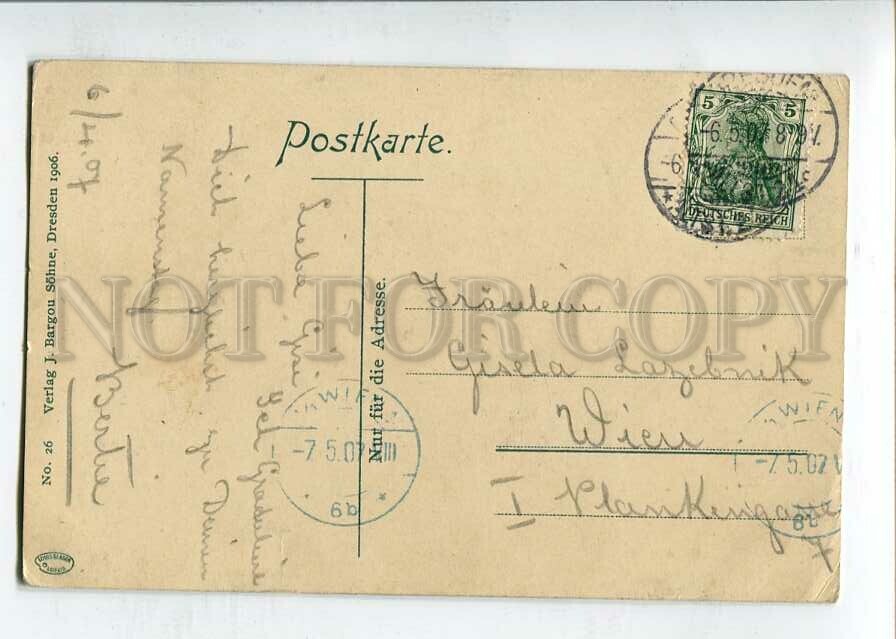 Postkarte.
Nur für die Adresse.
Fräulein
Gisela Lazebnik
Wien
I Plankengasse
7
5 5
DEUTSCHES REICH
DRESDEN
-6.5.07 8-9V.
WIEN
-7.5.07 VIII
WIEN
-7.5.07 V
6/V. 07
Liebe Gisi!
Ich Gratuliere
Dich herzlich zu Deinem
Namenstag
Bertha
No. 26 Verlag J. Bargou Söhne, Dresden 1906.
NOT FOR COPY